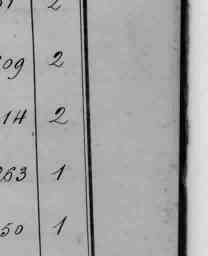 09 2
14 2
263 1
50 1